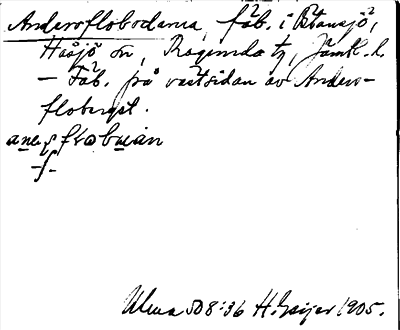 Andersflobodarna, fäb. i Stansjö,
Håsjö sn, Ragunda tg, Jämtl. l.
— Fäb. på västsidan av Anders-
floberget.
Ulma 508:36 H. Geijer 1905.